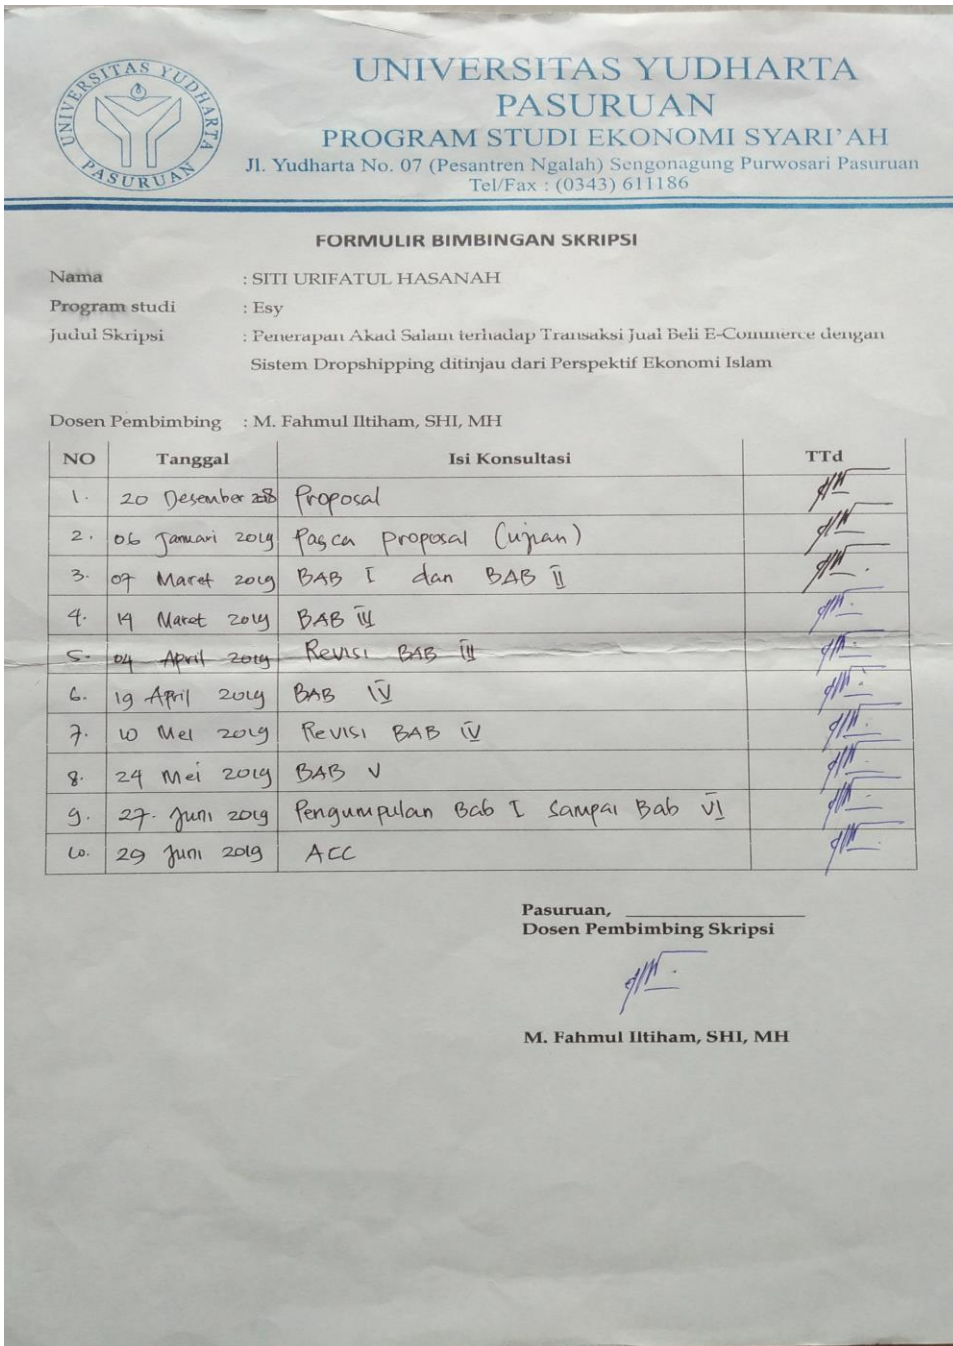 UNIVERSITAS YUDHARTA PASURUAN
UNIVERSITAS YUDHARTA
PASURUAN
PROGRAM STUDI EKONOMI SYARI'AH
Jl. Yudharta No. 07 (Pesantren Ngalah) Sengonagung Purwosari Pasuruan
Tel/Fax : (0343) 611186
FORMULIR BIMBINGAN SKRIPSI
Nama : SITI URIFATUL HASANAH
Program studi : Esy
Judul Skripsi : Penerapan Akad Salam terhadap Transaksi Jual Beli E-Commerce dengan
Sistem Dropshipping ditinjau dari Perspektif Ekonomi Islam
Dosen Pembimbing : M. Fahmul Iltiham, SHI, MH
NO Tanggal Isi Konsultasi TTd
1. 20 Desember 2018 Proposal
2. 06 Januari 2019 Pasca proposal (ujian)
3. 07 Maret 2019 BAB I dan BAB II
4. 19 Maret 2019 BAB III
5. 04 April 2019 Revisi BAB III
6. 19 April 2019 BAB IV
7. 10 Mei 2019 Revisi BAB IV
8. 24 Mei 2019 BAB V
9. 27. Juni 2019 Pengumpulan Bab I Sampai Bab VI
10. 29 Juni 2019 ACC
Pasuruan,
Dosen Pembimbing Skripsi
M. Fahmul Iltiham, SHI, MH